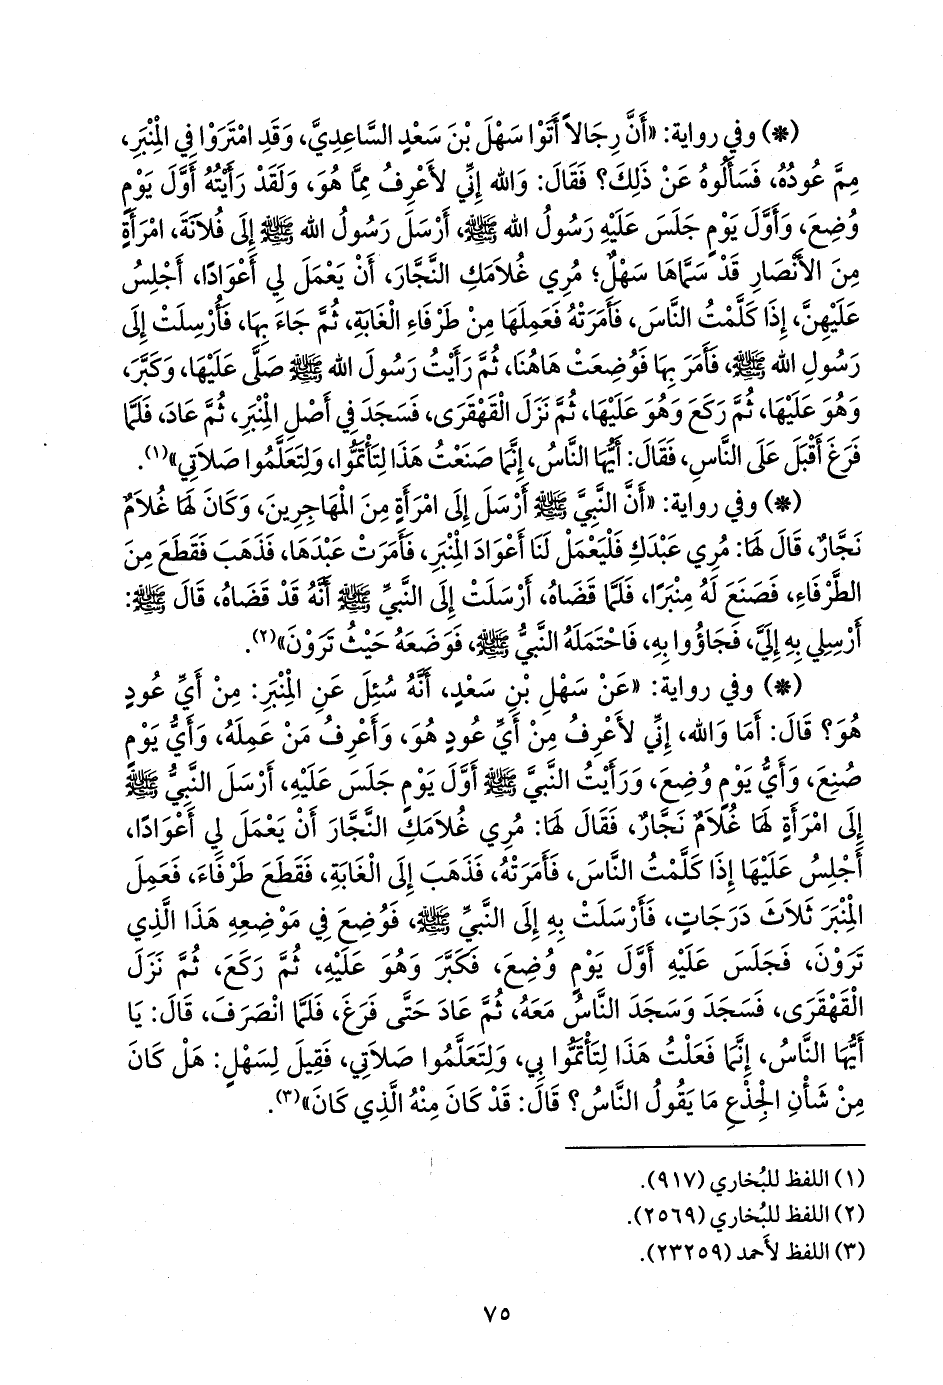 (*) وفي رواية: «أَنَّ رِجَالاً أَتَوْا سَهْلَ بْنَ سَعْدٍ السَّاعِدِيَّ، وَقَدِ امْتَرَوْا فِي الْمِنْبَرِ،
مِمَّ عُودُهُ، فَسَأَلُوهُ عَنْ ذَلِكَ؟ فَقَالَ: وَالله إِنِّي لأَعْرِفُ مِمَّا هُوَ، وَلَقَدْ رَأَيْتُهُ أَوَّلَ يَوْمٍ
وُضِعَ، وَأَوَّلَ يَوْمٍ جَلَسَ عَلَيْهِ رَسُولُ الله ﷺ، أَرْسَلَ رَسُولُ الله ﷺ إِلَى فُلاَنَةَ، امْرَأَةٍ
مِنَ الأَنْصَارِ قَدْ سَمَّاهَا سَهْلٌ؛ مُرِي غُلاَمَكِ النَّجَّارَ، أَنْ يَعْمَلَ لِي أَعْوَادًا، أَجْلِسُ
عَلَيْهِنَّ، إِذَا كَلَّمْتُ النَّاسَ، فَأَمَرَتْهُ فَعَمِلَهَا مِنْ طَرْفَاءِ الْغَابَةِ، ثُمَّ جَاءَ بِهَا، فَأَرْسِلَتْ إِلَى
رَسُولِ الله ﷺ، فَأَمَرَ بِهَا فَوُضِعَتْ هَاهُنَا، ثُمَّ رَأَيْتُ رَسُولَ الله ﷺ صَلَّى عَلَيْهَا، وَكَبَّرَ،
وَهُوَ عَلَيْهَا، ثُمَّ رَكَعَ وَهُوَ عَلَيْهَا، ثُمَّ نَزَلَ الْقَهْقَرَى، فَسَجَدَ فِي أَصْلِ الْمِنْبَرِ، ثُمَّ عَادَ، فَلَمَّا
فَرَغَ أَقْبَلَ عَلَى النَّاسِ، فَقَالَ: أَيُّهَا النَّاسُ، إِنَّمَا صَنَعْتُ هَذَا لِتَأْتَمُّوا، وَلِتَعَلَّمُوا صَلاَتِي»(١).
(*) وفي رواية: «أَنَّ النَّبِيَّ ﷺ أَرْسَلَ إِلَى امْرَأَةٍ مِنَ الْمُهَاجِرِينَ، وَكَانَ لَهَا غُلاَمٌ
نَجَّارٌ، قَالَ لَهَا: مُرِي عَبْدَكِ فَلْيَعْمَلْ لَنَا أَعْوَادَ الْمِنْبَرِ، فَأَمَرَتْ عَبْدَهَا، فَذَهَبَ فَقَطَعَ مِنَ
الطَّرْفَاءِ، فَصَنَعَ لَهُ مِنْبَرًا، فَلَمَّا قَضَاهُ، أَرْسَلَتْ إِلَى النَّبِيِّ ﷺ أَنَّهُ قَدْ قَضَاهُ، قَالَ ﷺ:
أَرْسِلِي بِهِ إِلَيَّ، فَجَاؤُوا بِهِ، فَاحْتَمَلَهُ النَّبِيُّ ﷺ، فَوَضَعَهُ حَيْثُ تَرَوْنَ»(٢).
(*) وفي رواية: «عَنْ سَهْلِ بْنِ سَعْدٍ، أَنَّهُ سُئِلَ عَنِ الْمِنْبَرِ: مِنْ أَيِّ عُودٍ
هُوَ؟ قَالَ: أَمَا وَالله، إِنِّي لأَعْرِفُ مِنْ أَيِّ عُودٍ هُوَ، وَأَعْرِفُ مَنْ عَمِلَهُ، وَأَيُّ يَوْمٍ
صُنِعَ، وَأَيُّ يَوْمٍ وُضِعَ، وَرَأَيْتُ النَّبِيَّ ﷺ أَوَّلَ يَوْمٍ جَلَسَ عَلَيْهِ، أَرْسَلَ النَّبِيُّ ﷺ
إِلَى امْرَأَةٍ لَهَا غُلاَمٌ نَجَّارٌ، فَقَالَ لَهَا: مُرِي غُلاَمَكِ النَّجَّارَ أَنْ يَعْمَلَ لِي أَعْوَادًا،
أَجْلِسُ عَلَيْهَا إِذَا كَلَّمْتُ النَّاسَ، فَأَمَرَتْهُ، فَذَهَبَ إِلَى الْغَابَةِ، فَقَطَعَ طَرْفَاءَ، فَعَمِلَ
الْمِنْبَرَ ثَلاَثَ دَرَجَاتٍ، فَأَرْسَلَتْ بِهِ إِلَى النَّبِيِّ ﷺ، فَوُضِعَ فِي مَوْضِعِهِ هَذَا الَّذِي
تَرَوْنَ، فَجَلَسَ عَلَيْهِ أَوَّلَ يَوْمٍ وُضِعَ، فَكَبَّرَ وَهُوَ عَلَيْهِ، ثُمَّ رَكَعَ، ثُمَّ نَزَلَ
الْقَهْقَرَى، فَسَجَدَ وَسَجَدَ النَّاسُ مَعَهُ، ثُمَّ عَادَ حَتَّى فَرَغَ، فَلَمَّا انْصَرَفَ، قَالَ: يَا
أَيُّهَا النَّاسُ، إِنَّمَا فَعَلْتُ هَذَا لِتَأْتَمُّوا بِي، وَلِتَعَلَّمُوا صَلاَتِي، فَقِيلَ لِسَهْلٍ: هَلْ كَانَ
مِنْ شَأْنِ الْجِذْعِ مَا يَقُولُ النَّاسُ؟ قَالَ: قَدْ كَانَ مِنْهُ الَّذِي كَانَ»(٣).
(١) اللفظ للبُخاري (٩١٧).
(٢) اللفظ للبُخاري (٢٥٦٩).
(٣) اللفظ لأَحمد (٢٣٢٥٩).
٧٥